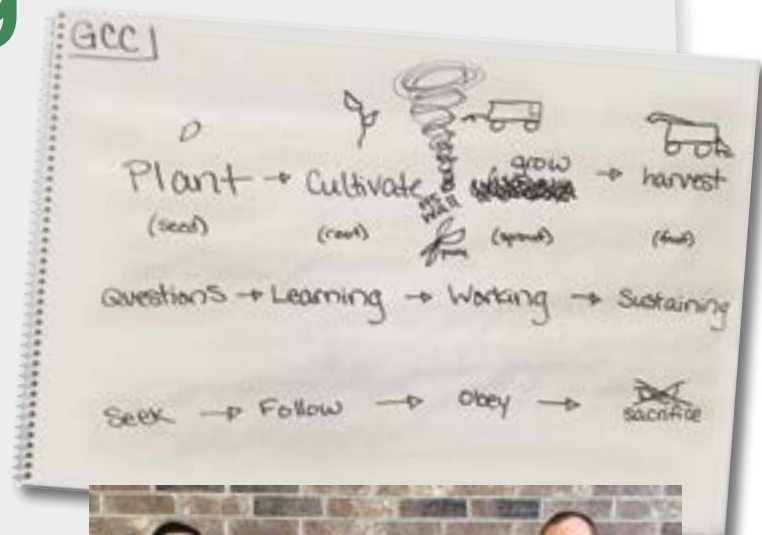 g
GCC
Plant → Cultivate grow → harvest
(seed) (root) (sprout) (fruit)
the wall
Questions → Learning → Working → Sustaining
Seek → Follow → Obey → sacrifice